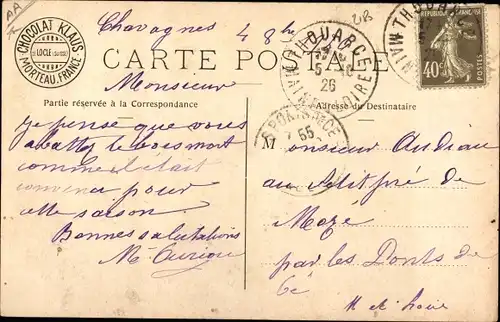 AA
2B
Chavagnes 4 8bre
CHOCOLAT KLAUS
LE LOCLE (SUISSE)
MORTEAU, FRANCE
CARTE POSTALE
THOUARCE
5 - 10
26
MAINE-ET-LOIRE
RÉPUBLIQUE FRANÇAISE
40c
POSTES
Partie réservée à la Correspondance
Adresse du Destinataire
Monsieur
je pense que vous
abattez le bois mort
comme c'était
convenu pour
cette saison
Bonnes salutations
Monsieur Audiau
au Petit pré de
Mozé
par les Ponts de
Cé
M et Loire